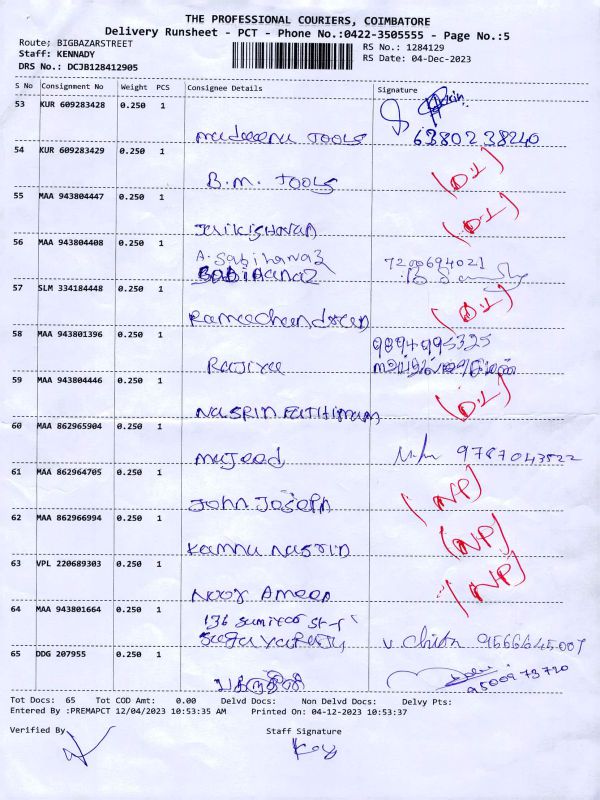 THE PROFESSIONAL COURIERS, COIMBATORE
Delivery Runsheet - PCT - Phone No.:0422-3505555 - Page No.:5
Route; BIGBAZARSTREET
RS No.: 1284129
Staff: KENNADY
RS Date: 04-Dec-2023
DRS No.: DCJB128412905
S No Consignment No Weight PCS Consignee Details Signature
53 KUR 609283428 0.250 1
TOOLS 6380238240
54 KUR 609283429 0.250 1
B.M. TOOLS (D.L)
55 MAA 943804447 0.250 1
Jaikishoran (D.L)
56 MAA 943804408 0.250 1
A. Sabihanaz 7200694021
SABIHANAZ
57 SLM 334184448 0.250 1
Ramachandran (D.L)
58 MAA 943801396 0.250 1
9894995325
Rajiya
59 MAA 943804446 0.250 1
NASRIN FATHIMAA (D.L)
60 MAA 862965904 0.250 1
majeed 9787043522
61 MAA 862964705 0.250 1
JOHN JOSEPH (NP)
62 MAA 862966994 0.250 1
Kannu NASRIN (NP)
63 VPL 220689303 0.250 1
Noor Ameen (NP)
64 MAA 943801664 0.250 1
136
V. 9566645007
65 DDG 207955 0.250 1
9500973720
Tot Docs: 65 Tot COD Amt: 0.00 Delvd Docs: Non Delvd Docs: Delvy Pts:
Entered By :PREMAPCT 12/04/2023 10:53:35 AM Printed On: 04-12-2023 10:53:37
Verified By
Staff Signature